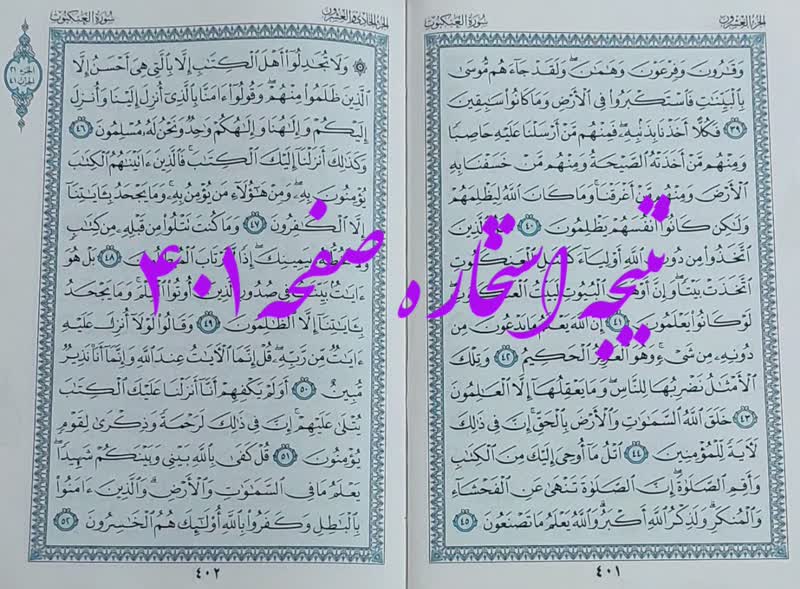 الجزء العشرون
سورة العنكبوت
وَقَٰرُونَ وَفِرْعَوْنَ وَهَٰمَٰنَ ۖ وَلَقَدْ جَآءَهُم مُّوسَىٰ
بِٱلْبَيِّنَٰتِ فَٱسْتَكْبَرُوا۟ فِى ٱلْأَرْضِ وَمَا كَانُوا۟ سَٰبِقِينَ
٣٩ فَكُلًّا أَخَذْنَا بِذَنۢبِهِۦ ۖ فَمِنْهُم مَّنْ أَرْسَلْنَا عَلَيْهِ حَاصِبًا
وَمِنْهُم مَّنْ أَخَذَتْهُ ٱلصَّيْحَةُ وَمِنْهُم مَّنْ خَسَفْنَا بِهِ
ٱلْأَرْضَ وَمِنْهُم مَّنْ أَغْرَقْنَا ۚ وَمَا كَانَ ٱللَّهُ لِيَظْلِمَهُمْ
وَلَٰكِن كَانُوٓا۟ أَنفُسَهُمْ يَظْلِمُونَ ٤٠ مَثَلُ ٱلَّذِينَ
ٱتَّخَذُوا۟ مِن دُونِ ٱللَّهِ أَوْلِيَآءَ كَمَثَلِ ٱلْعَنكَبُوتِ
ٱتَّخَذَتْ بَيْتًا ۖ وَإِنَّ أَوْهَنَ ٱلْبُيُوتِ لَبَيْتُ ٱلْعَنكَبُوتِ
لَوْ كَانُوا۟ يَعْلَمُونَ ٤١ إِنَّ ٱللَّهَ يَعْلَمُ مَا يَدْعُونَ مِن
دُونِهِۦ مِن شَىْءٍ ۚ وَهُوَ ٱلْعَزِيزُ ٱلْحَكِيمُ ٤٢ وَتِلْكَ
ٱلْأَمْثَٰلُ نَضْرِبُهَا لِلنَّاسِ ۖ وَمَا يَعْقِلُهَآ إِلَّا ٱلْعَٰلِمُونَ
٤٣ خَلَقَ ٱللَّهُ ٱلسَّمَٰوَٰتِ وَٱلْأَرْضَ بِٱلْحَقِّ ۚ إِنَّ فِى ذَٰلِكَ
لَءَايَةً لِّلْمُؤْمِنِينَ ٤٤ ٱتْلُ مَآ أُوحِىَ إِلَيْكَ مِنَ ٱلْكِتَٰبِ
وَأَقِمِ ٱلصَّلَوٰةَ ۖ إِنَّ ٱلصَّلَوٰةَ تَنْهَىٰ عَنِ ٱلْفَحْشَآءِ
وَٱلْمُنكَرِ ۗ وَلَذِكْرُ ٱللَّهِ أَكْبَرُ ۗ وَٱللَّهُ يَعْلَمُ مَا تَصْنَعُونَ ٤٥
٤٠١
سورة العنكبوت
الجزء الحادي والعشرون
الجزء ٢١
۞ وَلَا تُجَٰدِلُوٓا۟ أَهْلَ ٱلْكِتَٰبِ إِلَّا بِٱلَّتِى هِىَ أَحْسَنُ إِلَّا
ٱلَّذِينَ ظَلَمُوا۟ مِنْهُمْ ۖ وَقُولُوٓا۟ ءَامَنَّا بِٱلَّذِىٓ أُنزِلَ إِلَيْنَا وَأُنزِلَ
إِلَيْكُمْ وَإِلَٰهُنَا وَإِلَٰهُكُمْ وَٰحِدٌ وَنَحْنُ لَهُۥ مُسْلِمُونَ ٤٦
وَكَذَٰلِكَ أَنزَلْنَآ إِلَيْكَ ٱلْكِتَٰبَ ۚ فَٱلَّذِينَ ءَاتَيْنَٰهُمُ ٱلْكِتَٰبَ
يُؤْمِنُونَ بِهِۦ ۖ وَمِنْ هَٰٓؤُلَآءِ مَن يُؤْمِنُ بِهِۦ ۚ وَمَا يَجْحَدُ بِـَٔايَٰتِنَآ
إِلَّا ٱلْكَٰفِرُونَ ٤٧ وَمَا كُنتَ تَتْلُوا۟ مِن قَبْلِهِۦ مِن كِتَٰبٍ
وَلَا تَخُطُّهُۥ بِيَمِينِكَ ۖ إِذًا لَّٱرْتَابَ ٱلْمُبْطِلُونَ ٤٨ بَلْ هُوَ
ءَايَٰتٌۢ بَيِّنَٰتٌ فِى صُدُورِ ٱلَّذِينَ أُوتُوا۟ ٱلْعِلْمَ ۚ وَمَا يَجْحَدُ
بِـَٔايَٰتِنَآ إِلَّا ٱلظَّٰلِمُونَ ٤٩ وَقَالُوا۟ لَوْلَآ أُنزِلَ عَلَيْهِ
ءَايَٰتٌ مِّن رَّبِّهِۦ ۖ قُلْ إِنَّمَا ٱلْءَايَٰتُ عِندَ ٱللَّهِ وَإِنَّمَآ أَنَا۠ نَذِيرٌ
مُّبِينٌ ٥٠ أَوَلَمْ يَكْفِهِمْ أَنَّآ أَنزَلْنَا عَلَيْكَ ٱلْكِتَٰبَ
يُتْلَىٰ عَلَيْهِمْ ۚ إِنَّ فِى ذَٰلِكَ لَرَحْمَةً وَذِكْرَىٰ لِقَوْمٍ
يُؤْمِنُونَ ٥١ قُلْ كَفَىٰ بِٱللَّهِ بَيْنِى وَبَيْنَكُمْ شَهِيدًا ۖ
يَعْلَمُ مَا فِى ٱلسَّمَٰوَٰتِ وَٱلْأَرْضِ ۗ وَٱلَّذِينَ ءَامَنُوا۟
بِٱلْبَٰطِلِ وَكَفَرُوا۟ بِٱللَّهِ أُو۟لَٰٓئِكَ هُمُ ٱلْخَٰسِرُونَ ٥٢
٤٠٢
نتیجه استخاره صفحه ۴۰۱